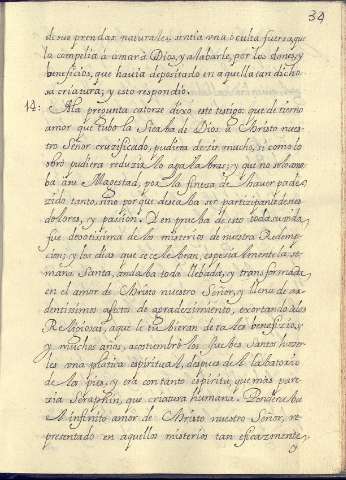 34
de sus prendas naturales, sentia vna oculta fuersa que
la compelia à amar à Dios, y alabarle, por los dones, y
beneficios, que havia depositado en aquella tan dicho
sa criatura, y esto respondiò.
14: A la pregunta catorze dixo este testigo: que de tierno
amor que tubo la Sierba de Dios à Christo nues
tro Señor crucificado, pudiera dezir mucho, si como lo
obrò pudiera reduzirlo a palabras; y que no solo ama
ba à su Magestad, por la fineza de haver pade
zido tanto, sino por que deseaba ser participante de sus
dolores, y pasion. Y en prueba de esto toda su vida
fue devotisima de los misterios de nuestra Redemp
cion; y los dias que se celebran, especialmente la se
mana Santa, andaba toda llebada, y transformada
en el amor de Christo nuestro Señor, y llena de ar
dentissimos afectos de agradezimiento, exortando à las
Religiosas, a que le tubieran de tales beneficios, y
y muchos años, acostumbrò los Juebes Santos hazer
les vna platica espiritual, despues del labatorio
de los pies, y era con tanto espiritu, que mas pare
zia Seraphin, que criatura humana. Ponderaba
el infinito amor de Christo nuestro Señor, re
presentado en aquellos misterios tan eficazmente,